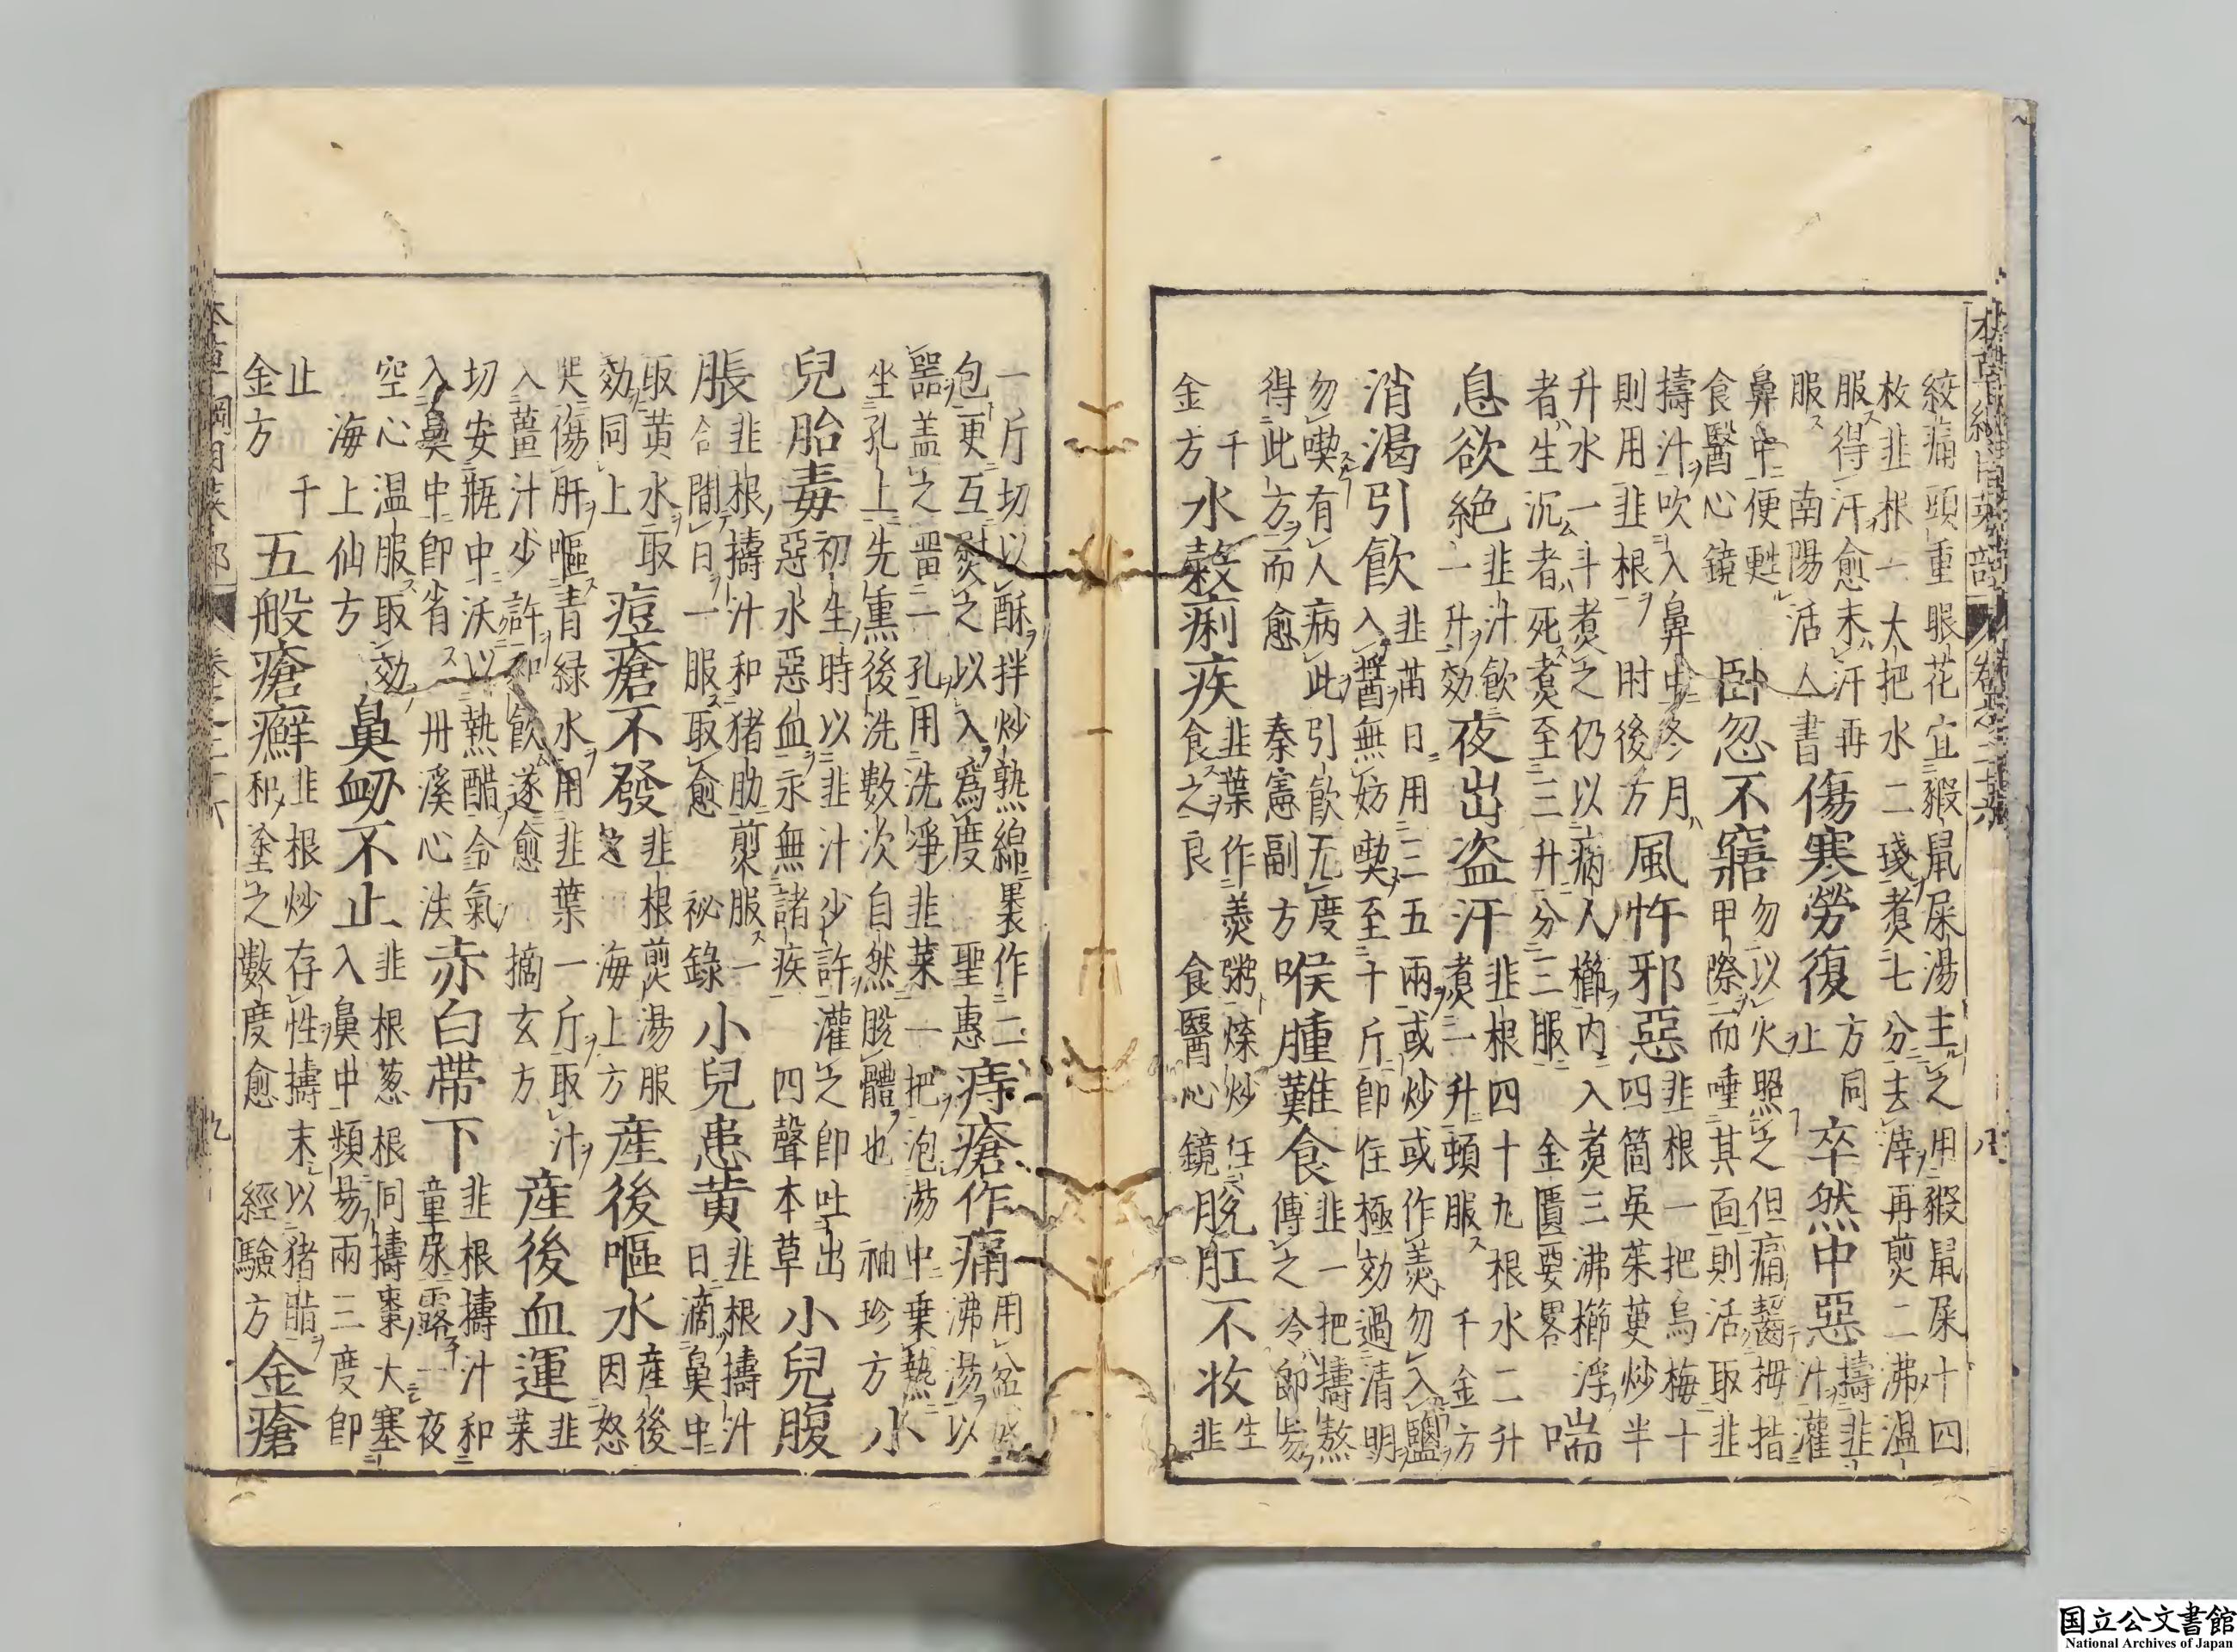 本草綱目菜部 卷之二十六 八
絞痛頭重眼花宜豭鼠屎湯主之用豭鼠屎十四
枚韭根一大把水二琖煮七分去滓再煎二沸温
服得汗愈未汗再
服 南陽活人書
傷寒勞復
方同
上
卒然中惡
擣韭
汁灌
鼻中便甦
食醫心鏡
卧忽不寤
勿以火照之但痛齧拇指
甲際而唾其面則活取韭
擣汁吹入鼻中冬月
則用韭根 肘後方
風忤邪惡
韭根一把烏梅十
四箇吳茱萸炒半
升水一斗煮之仍以病人櫛内入煮三沸櫛浮
者生沉者死煮至三升分三服 金匱要畧
喘
息欲絶
韭汁飲
一升効
夜出盗汗
韭根四十九根水二升
煮一升頓服 千金方
消渇引飲
韭苗日用三五兩或炒或作羮勿入鹽
入醬無妨喫至十斤即住極効過清明
勿喫有人病此引飲无度
得此方而愈 秦憲副方
喉腫難食
韭一把擣熬
傅之冷即易
千
金方
水糓痢疾
韭葉作羮粥煠炒任
食之良 食醫心鏡
脱肛不收
生
韭
一斤切以酥拌炒熟綿裹作二
包更互熨之以入爲度 聖惠
痔瘡作痛
用盆盛
沸湯以
器盖之畱一孔用洗淨韭菜一把泡湯中乗熱
坐孔上先熏後洗數次自然脱體也 袖珍方
小
兒胎毒
初生時以韭汁少許灌之即吐出
惡水惡血永無諸疾 四聲本草
小兒腹
脹
韭根擣汁和猪肪煎服一
合間日一服取愈 秘錄
小兒患黄
韭根擣汁
日滴鼻中
取黄水取
効同上
痘瘡不發
韭根煎湯服
之 海上方
産後嘔水
産後
因怒
哭傷肝嘔青緑水用韭葉一斤取汁
入薑汁少許和飲遂愈 摘玄方
産後血運
韭
菜
切安瓶中沃以熱醋令氣
入鼻中即省 丹溪心法
赤白帶下
韭根擣汁和
童尿露一夜
空心温服取効
海上仙方
鼻衂不止
韭根葱根同擣棗大塞
入鼻中頻易兩三度即
止 千
金方
五般瘡癬
韭根炒存性擣末以猪脂
和塗之數度愈 經驗方
金瘡
本草綱目菜部 卷之二十六 九
国立公文書館
National Archives of Japan